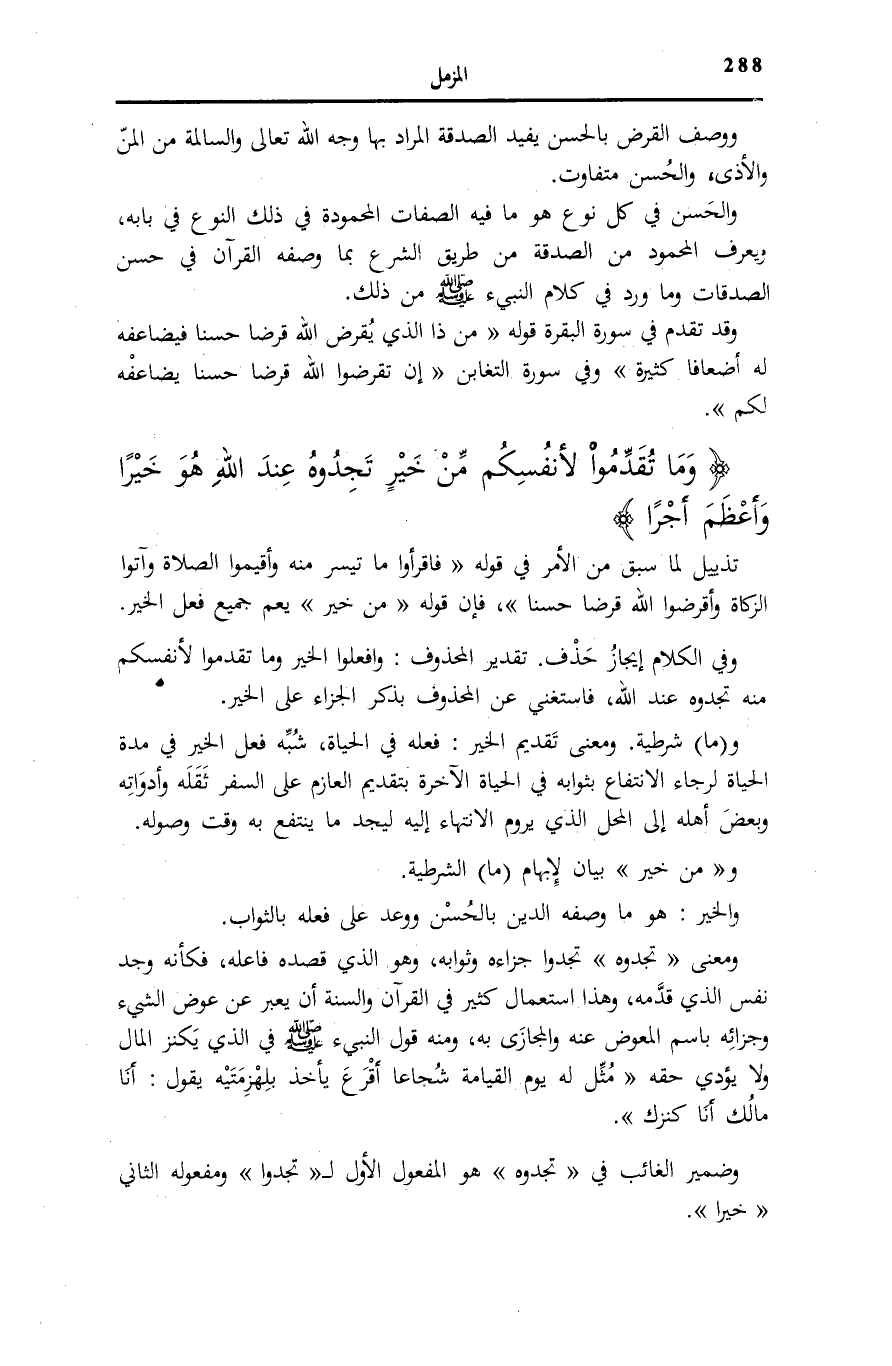 288
المزمل
ووصف القرض بالحسن يفيد الصدقة المراد بها وجه الله تعالى والسالمة من المنّ
والأذى، والحُسن متفاوت.
والحَسن في كل نوع هو ما فيه الصفات المحمودة في ذلك النوع في بابه،
ويعرف المحمود من الصدقة من طريق الشرع بما وصفه القرآن في حسن
الصدقات وما ورد في كلام النبيء ﷺ من ذلك.
وقد تقدم في سورة البقرة قوله « من ذا الذي يُقرض الله قرضا حسنا فيضاعفه
له أضعافا كثيرة » وفي سورة التغابن « إن تقرضوا الله قرضا حسنا يضاعفْه
لكم ».
﴿ وَمَا تُقَدِّمُواْ لأَنفُسِكُم مِّنْ خَيْرٍ تَجِدُوهُ عِندَ اللهِ هُوَ خَيْرًا
وَأَعْظَمَ أَجْرًا ﴾
تذييل لما سبق من الأمر في قوله « فاقرأوا ما تيسر منه وأقيموا الصلاة وآتوا
الزكاة وأقرضوا الله قرضا حسنا »، فإن قوله « من خير » يعم جميع فعل الخير.
وفي الكلام إيجازُ حَذْف. تقدير المحذوف : وافعلوا الخير وما تقدموا لأنفسكم
منه تجدوه عند الله، فاستغني عن المحذوف بذكر الجزاء على الخير.
و(ما) شرطية. ومعنى تَقديم الخير : فعله في الحياة، شُبِّه فعل الخير في مدة
الحياة لرجاء الانتفاع بثوابه في الحياة الآخرة بتقديم العازم على السفر ثَقَلَه وأدوَاتِه
وبعضَ أهله إلى المحل الذي يروم الانتهاء إليه ليجد ما ينتفع به وقت وصوله.
و« من خير » بيان لإِبهام (ما) الشرطية.
والخير : هو ما وصفه الدين بالحُسْن ووعد على فعله بالثواب.
ومعنى « تجدوه » تجدوا جزاءه وثوابه، وهو الذي قصده فاعله، فكأنه وجد
نفس الذي قدَّمه، وهذا استعمال كثير في القرآن والسنة أن يعبر عن عوض الشيء
وجزائِه باسم المعوض عنه والمجازَى به، ومنه قول النبيء ﷺ في الذي يَكنز المال
ولا يؤدي حقه « مُثِّل له يوم القيامة شُجاعا أقْرعَ يأخذ بلِهْزِمَتَيْه يقول : أنَا
مالُك أنَا كنزك ».
وضمير الغائب في « تجدوه » هو المفعول الأول لـ« تجدوا » ومفعوله الثاني
« خيرا ».